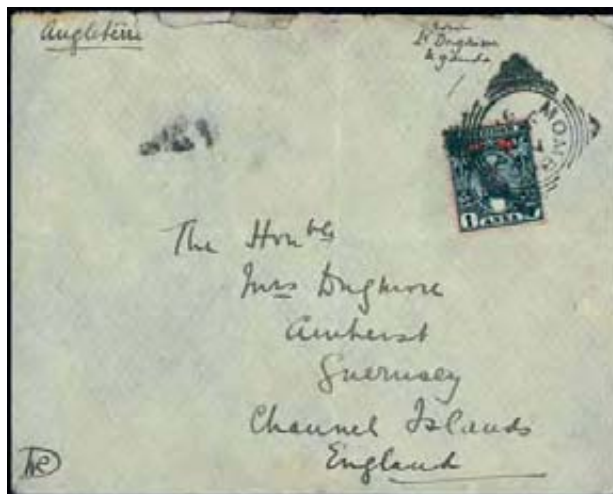 Angleterre
from
Lt Dugmore
Uganda
MOMB
1 ANNA
The Honble
Mrs Dugmore
Amherst
Guernsey
Channel Islands
England